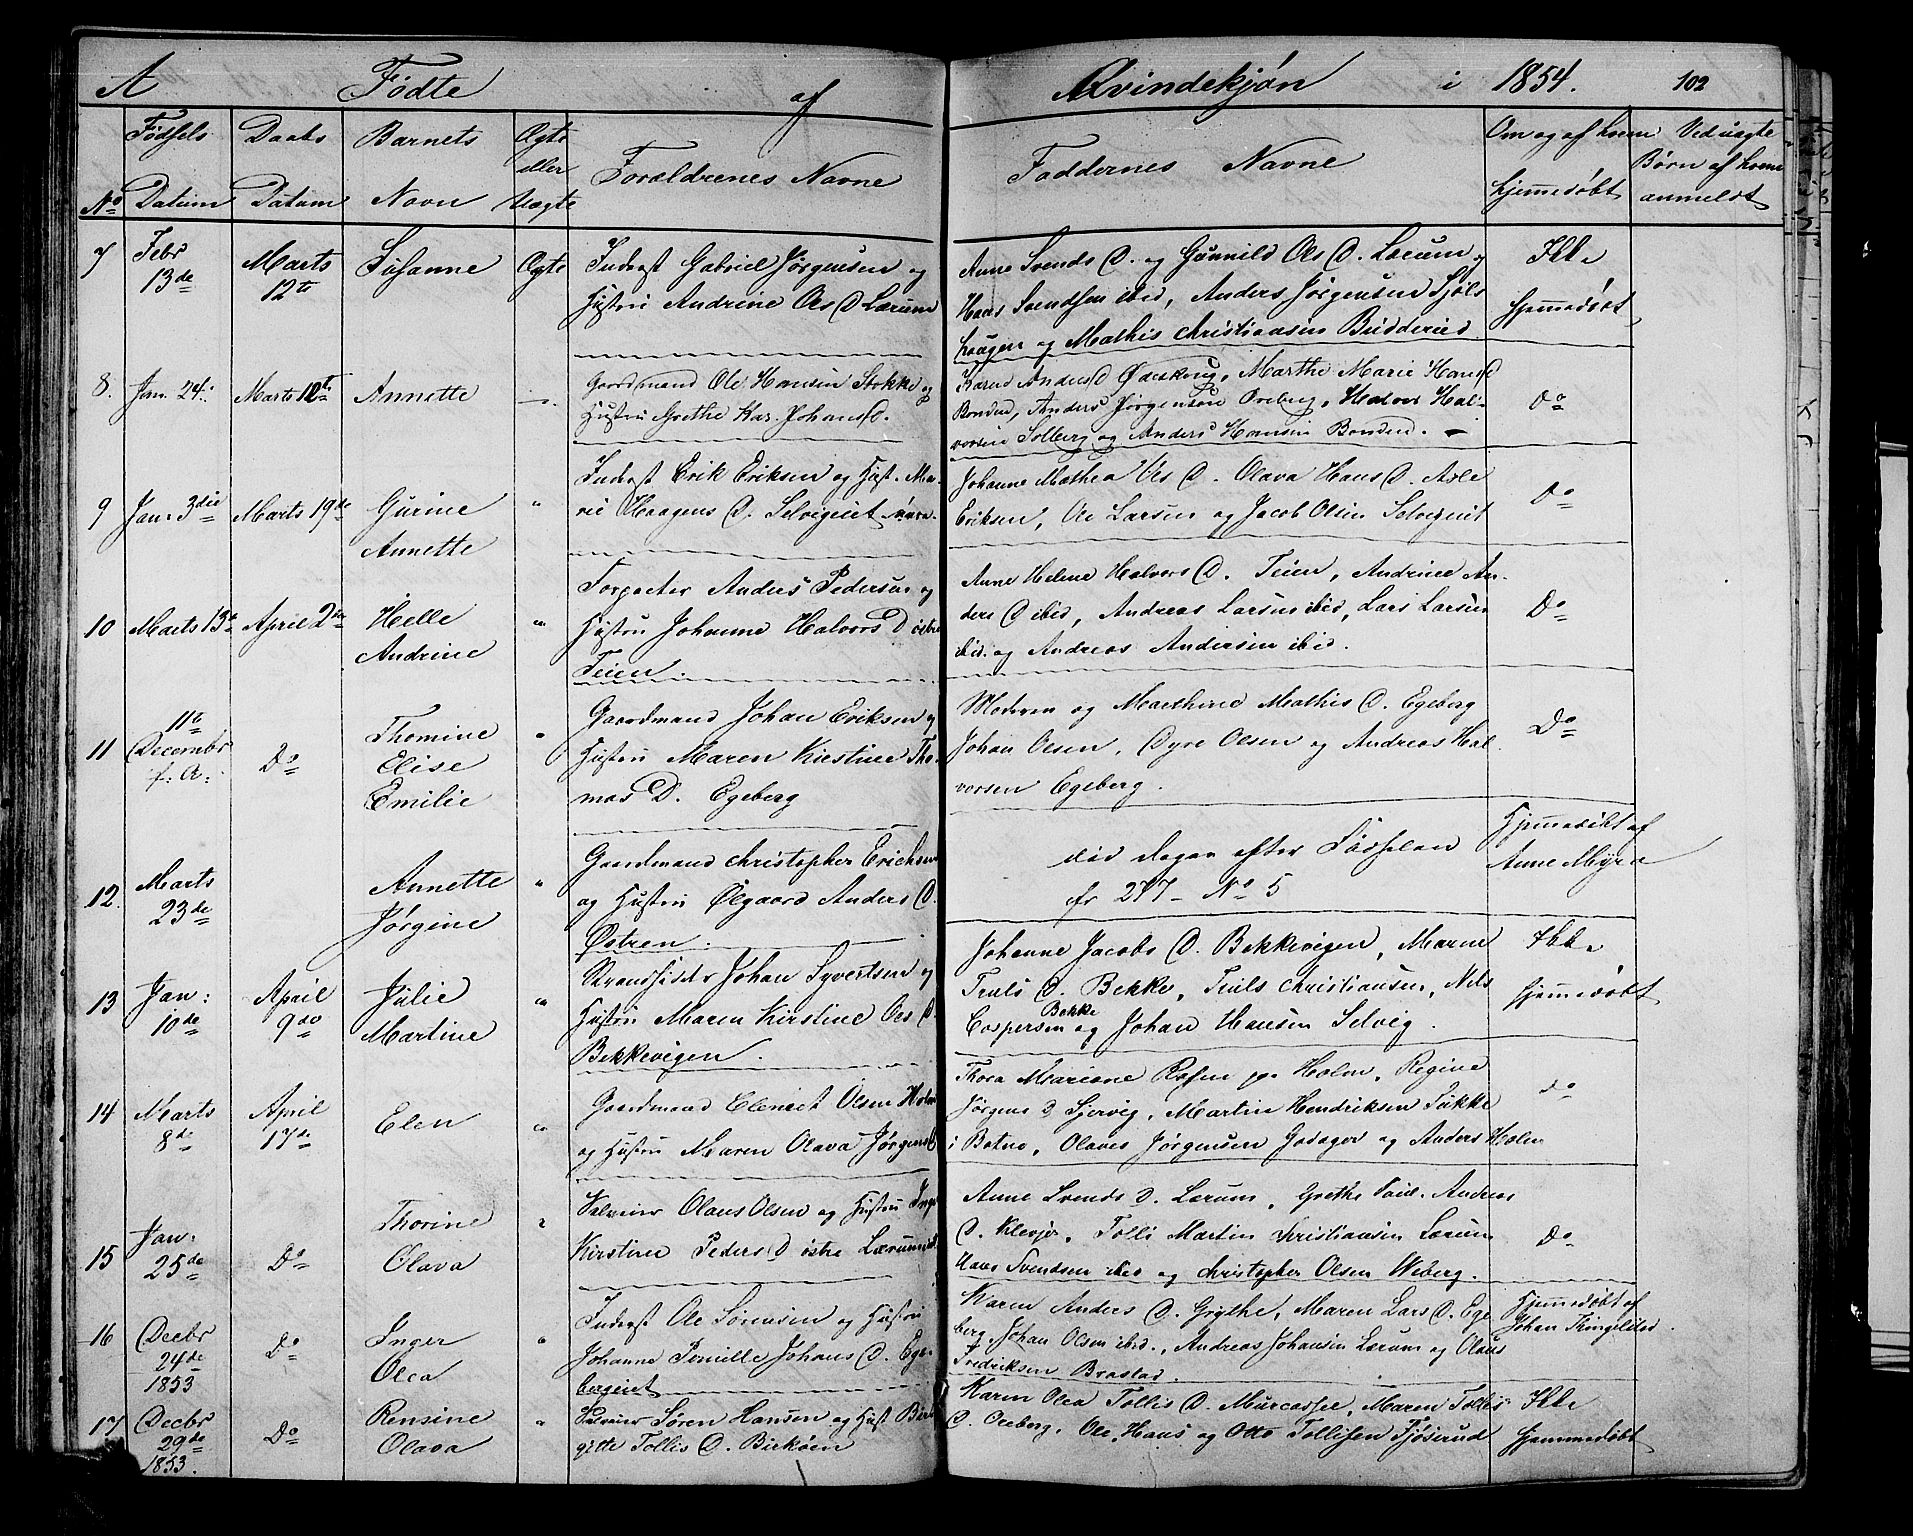 A Fødte af Qvindekjøn i 1854. 102
No Fødsels Datum Daabs Datum Barnets Navn Ægte eller Uægte Forældrenes Navne Faddernes Navne Om og af hvem hjemmedøbt Ved uægte Børn af hvem anmeldt
7 Febr 13de Marts 12te Susanne Ægte
Inderst Gabriel Jørgensen og
Hustru Andrine Ols D. Lærum
Anne Svends D. og Gunnild Ols D. Lærum,
Hans Svendsen ibid, Anders Jørgensen Sjøls
haugen og Mathis Christiansen
Ikke
hjemmedøbt
8. Jan. 24. Marts 12te Annette
Gaardmand Ole Hansen Stokke og
Hustru Grethe Kar. Johans D.
Karen Anders D. Marthe Marie Hans D
Bonden, Anders Jørgensen Oreberg, Halvor Hal-
vorsen Solberg og Anders Hansen Bonden.
Do
9 Jan. 3die Marts 19de Gurine
Annette "
Inderst Erik Eriksen og Hust. Ma-
rie Haagens D. Selvigeiet
Johanne Mathea D. Olava Hans D. Axle
Eriksen, Ole Larsen og Jacob Olsen Selvigeiet
Do
10 Marts 13de April 2den Helle
Andrine "
Forpagter Anders Pedersen og
Hustru Johanne Halvors D østre
Teien.
Anne Helene Halvors D. Teien, Andrine An-
ders D ibid, Andreas Larsen ibid, Lars Larsen
ibid. og Andreas Andersen ibid.
Do
11 11te
Decembr
f. A. Do Thomine
Elise
Emilie "
Gaardmand Johan Eriksen og
Hustru Maren Kirstine Tho-
mas D. Egeberg
Moderen og Marthine Mathis D. Egeberg
Johan Olsen, Dyre Olsen og Andreas Hal-
vorsen Egeberg.
Do
12. Marts
23de Annette
Jørgine "
Gaardmand Christopher Erichsen
og Hustru Ølgaard Anders D.
Østren.
død dagen efter Fødselen
fr 277 - No 5
Hjemmedøbt af
Anne Myra
13 Jan:
10de April
9de Julie
Martine "
Strandsidder Johan Syvertsen og
Hustru Maren Kirstine Ols D.
Bekkevigen.
Johanne Jacobs D. Bekkevigen, Maren
Truls D. Bekke, Truls Christiansen, Nels
Caspersen Bekke og Johan Hansen Selvig.
Ikke
hjemmedøbt
14 Marts
8de April
17de Elen "
Gaardmand Olsen Holm
og Hustru Maren Olava Jørgens D
Thora Mariane Holm, Regine
Jørgens D Sjervig, Martin Hendriksen Sukke
i Botne, Olaves Jørgensen og Anders Holm
do
15 Jan:
25de Do Thorine
Olava "
Selveier Olaus Olsen og Hustru Inger
Kirstine Peders D østre Lærum
Anne Svends D. Lærum, Grethe Andreas
D. Klevjer, Tolli Martin Christiansen Lærum
Hans Svendsen ibid og Christopher Olsen Weberg.
Do
16 Decbr
24de
1853 Do Inger
Olea "
Inderst Ole Sørensen og Hustru
Johanne Pernille Johans D. Ege-
bergeiet
Karen Anders D. Grythe, Maren Lars D. Ege
berg, Johan Olsen ibid., Andreas Johansen Lærum og Olaus
Fredriksen Brastad.
Hjemmedøbt af
Johan
17 Decbr
29de
1853. Do Rensine
Olava "
Selveier Søren Hansen og Hust Bir-
gitte Tollis D. Birkøen
Karen Olea Tollis D. Maren Tollis
D. Oreberg, Ole, Hans og Otto Tollisen Fjøserud
Ikke
hjemmedøbt